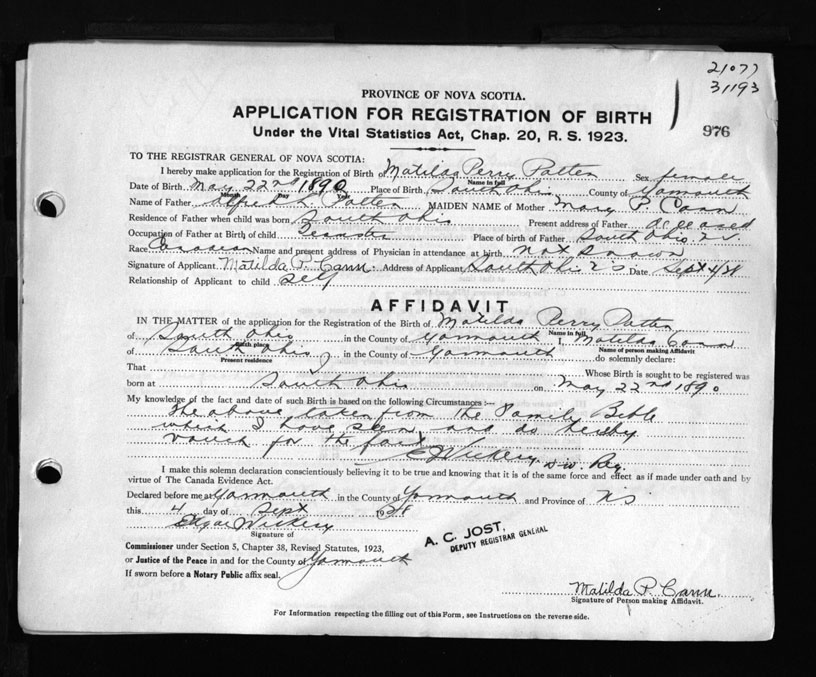 21077
31193
976
PROVINCE OF NOVA SCOTIA.
APPLICATION FOR REGISTRATION OF BIRTH
Under the Vital Statistics Act, Chap. 20, R. S. 1923.
TO THE REGISTRAR GENERAL OF NOVA SCOTIA:
I hereby make application for the Registration of Birth of Matilda Perry Patten Sex female
Name in full
Date of Birth May 22nd 1890 Place of Birth South Ohio County of Yarmouth
Month Day Year
Name of Father Alfred L. Patten MAIDEN NAME of Mother Mary P. Cann
Residence of Father when child was born South Ohio Present address of Father deceased
Occupation of Father at Birth of child Teamster Place of birth of Father South Ohio
Race Canadian Name and present address of Physician in attendance at birth not known
Signature of Applicant Matilda P. Cann. Address of Applicant South Ohio NS Date Sept 4/38
Relationship of Applicant to child Self
AFFIDAVIT
IN THE MATTER of the application for the Registration of the Birth of Matilda Perry Patten
Name in full
of South Ohio in the County of Yarmouth I, Matilda Cann
Birth place Name of person making Affidavit
of South Ohio, in the County of Yarmouth do solemnly declare:
Present residence
That Whose Birth is sought to be registered was
born at South Ohio on May 22nd 1890
My knowledge of the fact and date of such Birth is based on the following Circumstances:—
The above taken from the Family Bible
which I have seen and do hereby
vouch for the fact
E Vickery Div. Reg.
I make this solemn declaration conscientiously believing it to be true and knowing that it is of the same force and effect as if made under oath and by
virtue of The Canada Evidence Act.
Declared before me at Yarmouth in the County of Yarmouth and Province of NS
this 4 day of Sept 1938
Edgar Vickery
Signature of
Commissioner under Section 5, Chapter 38, Revised Statutes, 1923,
or Justice of the Peace in and for the County of Yarmouth
If sworn before a Notary Public affix seal.
A. C. JOST,
DEPUTY REGISTRAR GENERAL
Matilda P. Cann.
Signature of Person making Affidavit.
For Information respecting the filling out of this Form, see Instructions on the reverse side.